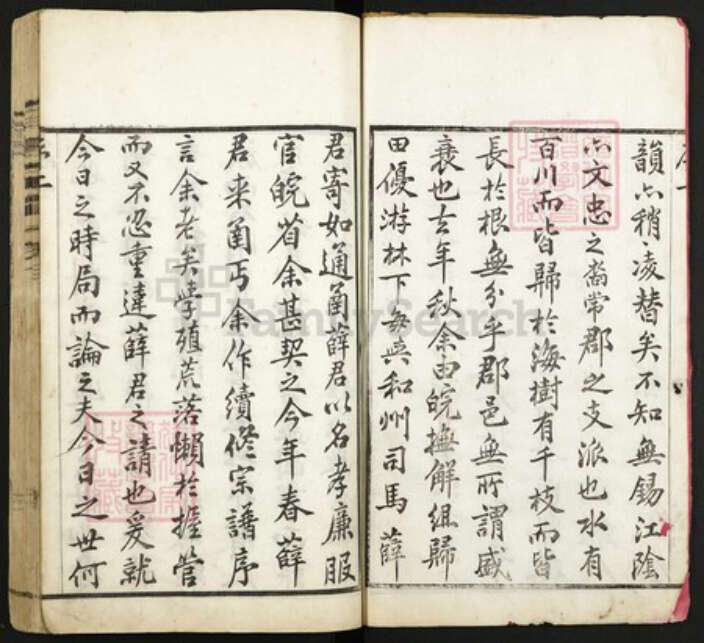 韻亦稍凌替矣不知無錫江陰
亦文忠之裔常郡之支派也水有
百川而皆歸於海樹有千枝而皆
長於根無分乎郡邑無所謂盛
衰也去年秋余由皖撫解組歸
田優游林下每與和州司馬薛
君寄如通函薛君以名孝廉服
官皖省余甚契之今年春薛
君来函丐余作續修宗譜序
言余老矣學殖荒落懶於握管
而又不忍重違薛君之請也爰就
今日之時局而論之夫今日之世何
FamilySearch